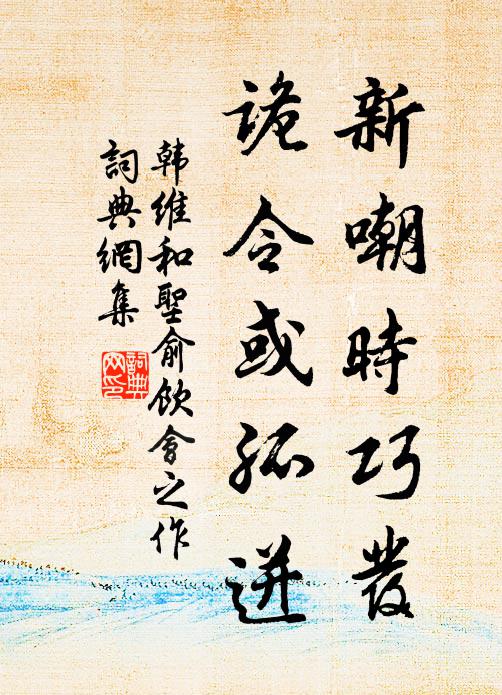 新嘲時巧發
詭令或孤迸
韩維和聖俞飲會之作
詞典網集
詞典
网印